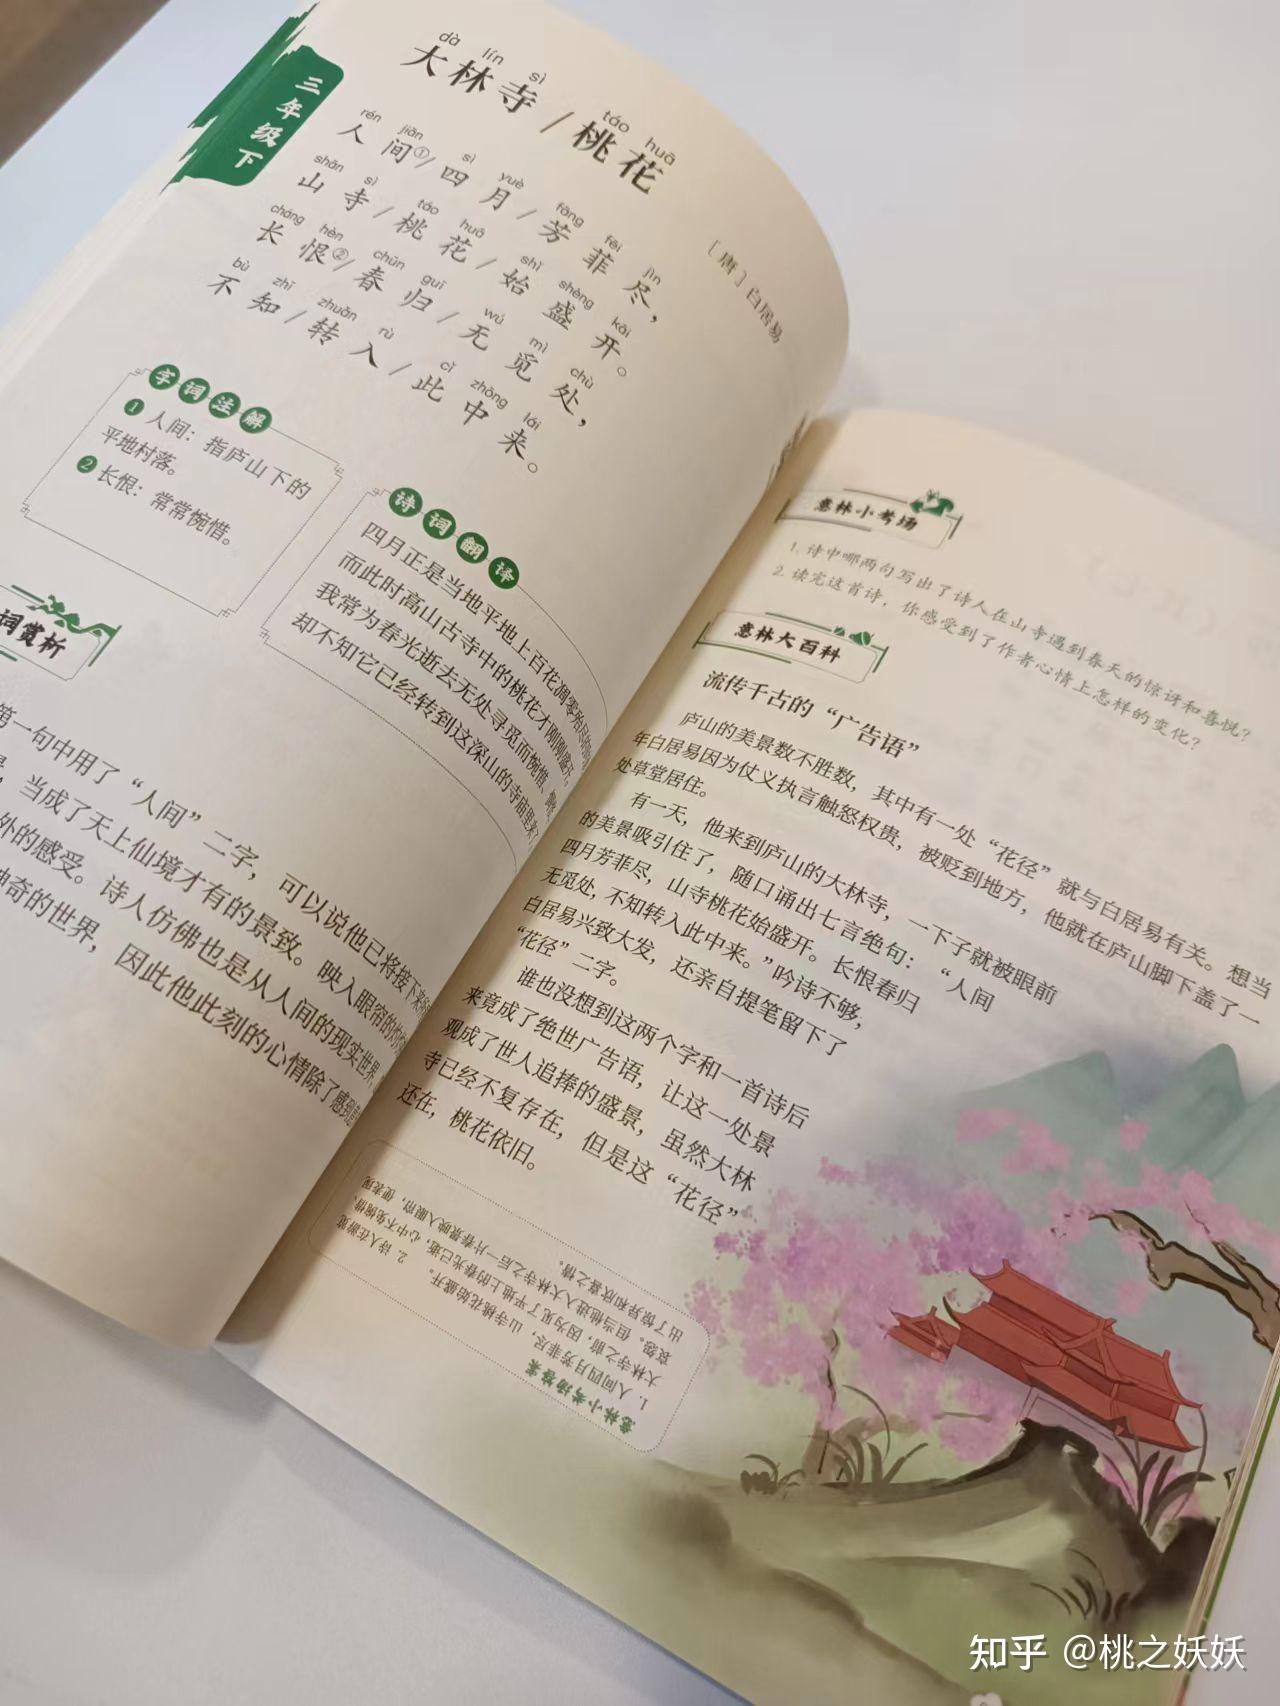 三年级下
dà lín sì táo huā
大林寺/桃花
[唐]白居易
rén jiān sì yuè fāng fēi jìn
人间①/四月/芳菲尽，
shān sì táo huā shǐ shèng kāi
山寺/桃花/始盛开。
cháng hèn chūn guī wú mì chù
长恨②/春归/无觅处，
bù zhī zhuǎn rù cǐ zhōng lái
不知/转入/此中来。
字词注解
1 人间：指庐山下的
平地村落。
2 长恨：常常惋惜。
诗词翻译
四月正是当地平地上百花凋零殆尽的时
而此时高山古寺中的桃花才刚刚盛开。
我常为春光逝去无处寻觅而惋惜，
却不知它已经转到这深山的寺庙里来了
词赏析
第一句中用了“人间”二字，可以说他已将接下来
，当成了天上仙境才有的景致。映入眼帘的
外的感受。诗人仿佛也是从人间的现实世界，
神奇的世界，因此他此刻的心情除了感到
意林小考场
1. 诗中哪两句写出了诗人在山寺遇到春天的惊讶和喜悦？
2. 读完这首诗，你感受到了作者心情上怎样的变化？
意林大百科
流传千古的“广告语”
庐山的美景数不胜数，其中有一处“花径”就与白居易有关。想当
年白居易因为仗义执言触怒权贵，被贬到地方，他就在庐山脚下盖了一
处草堂居住。
有一天，他来到庐山的大林寺，一下子就被眼前
的美景吸引住了，随口诵出七言绝句：“人间
四月芳菲尽，山寺桃花始盛开。长恨春归
无觅处，不知转入此中来。”吟诗不够，
白居易兴致大发，还亲自提笔留下了
“花径”二字。
谁也没想到这两个字和一首诗后
来竟成了绝世广告语，让这一处景
观成了世人追捧的盛景，虽然大林
寺已经不复存在，但是这“花径”
还在，桃花依旧。
意林小考场答案
1. 人间四月芳菲尽，山寺桃花始盛开。 2. 诗人在游览
大林寺之前，因为见了平地上的春光已逝，心中不免惋惜、
哀怨。但当他进入大林寺之后一片春景映入眼帘，便表现
出了惊异和欣喜之情。
知乎 @桃之妖妖